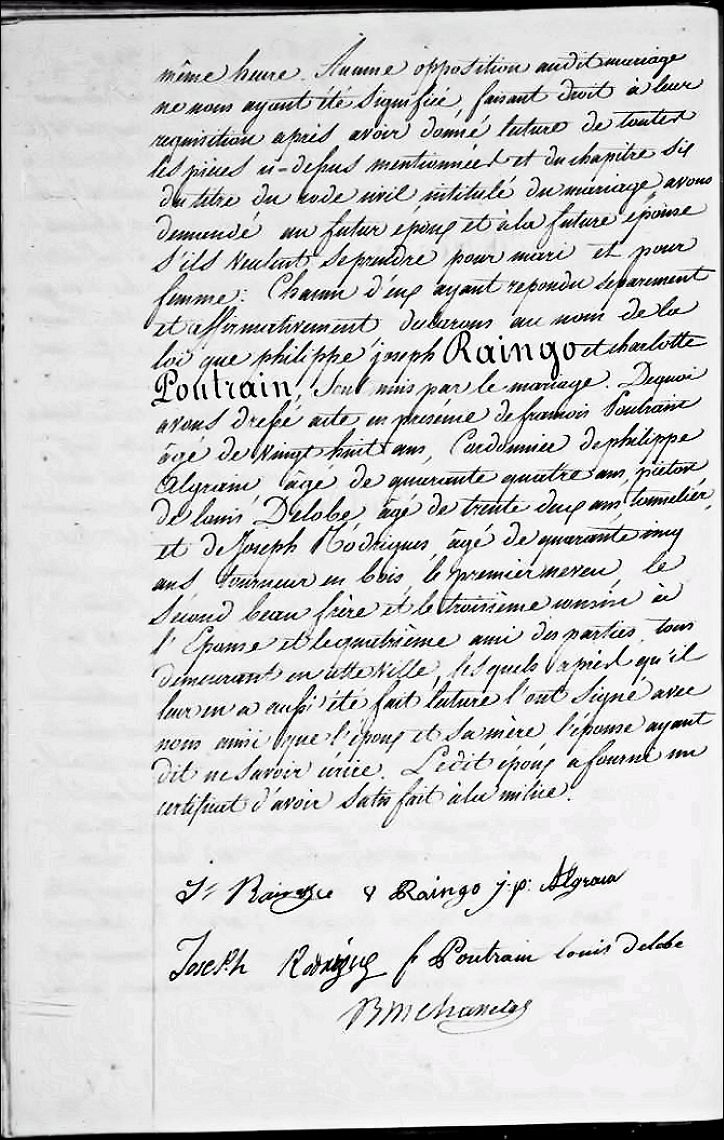 même heure. Aucune opposition audit mariage
ne nous ayant été signifiée, faisant droit à leur
requisition après avoir donné lecture de toutes
les pièces ci-dessus mentionnées et du chapitre six
du titre du code civil intitulé du mariage, avons
demandé au futur époux et à la future épouse
s'ils veulent se prendre pour mari et pour
femme: Chacun d'eux ayant repondu separement
et affirmativement declarons au nom de la
loi que philippe joseph Raingo et charlotte
Poutrain, sont unis par le mariage. De quoi
avons dressé acte en présence de francois Poutrain
âgé de vingt huit ans, Cordonnier de philippe
Algrain âgé de quarante quatre ans, piéton
de louis Delobe âgé de trente deux ans tonnelier,
et de Joseph Rodrigues âgé de quarante cinq
ans tourneur en bois, le premier neveu, le
second beau frère et le troisième cousin à
l'Epouse et le quatrième ami des parties, tous
demeurant en cette ville, lesquels après qu'il
leur en a aussi été fait lecture l'ont signé avec
nous ainsi que l'époux et sa mère, l'épouse ayant
dit ne savoir écrire. Ledit époux a fourni un
certificat d'avoir satisfait à la milice.
Raingo j: p: Algrain
Joseph Rodrigue f Poutrain louis delobe